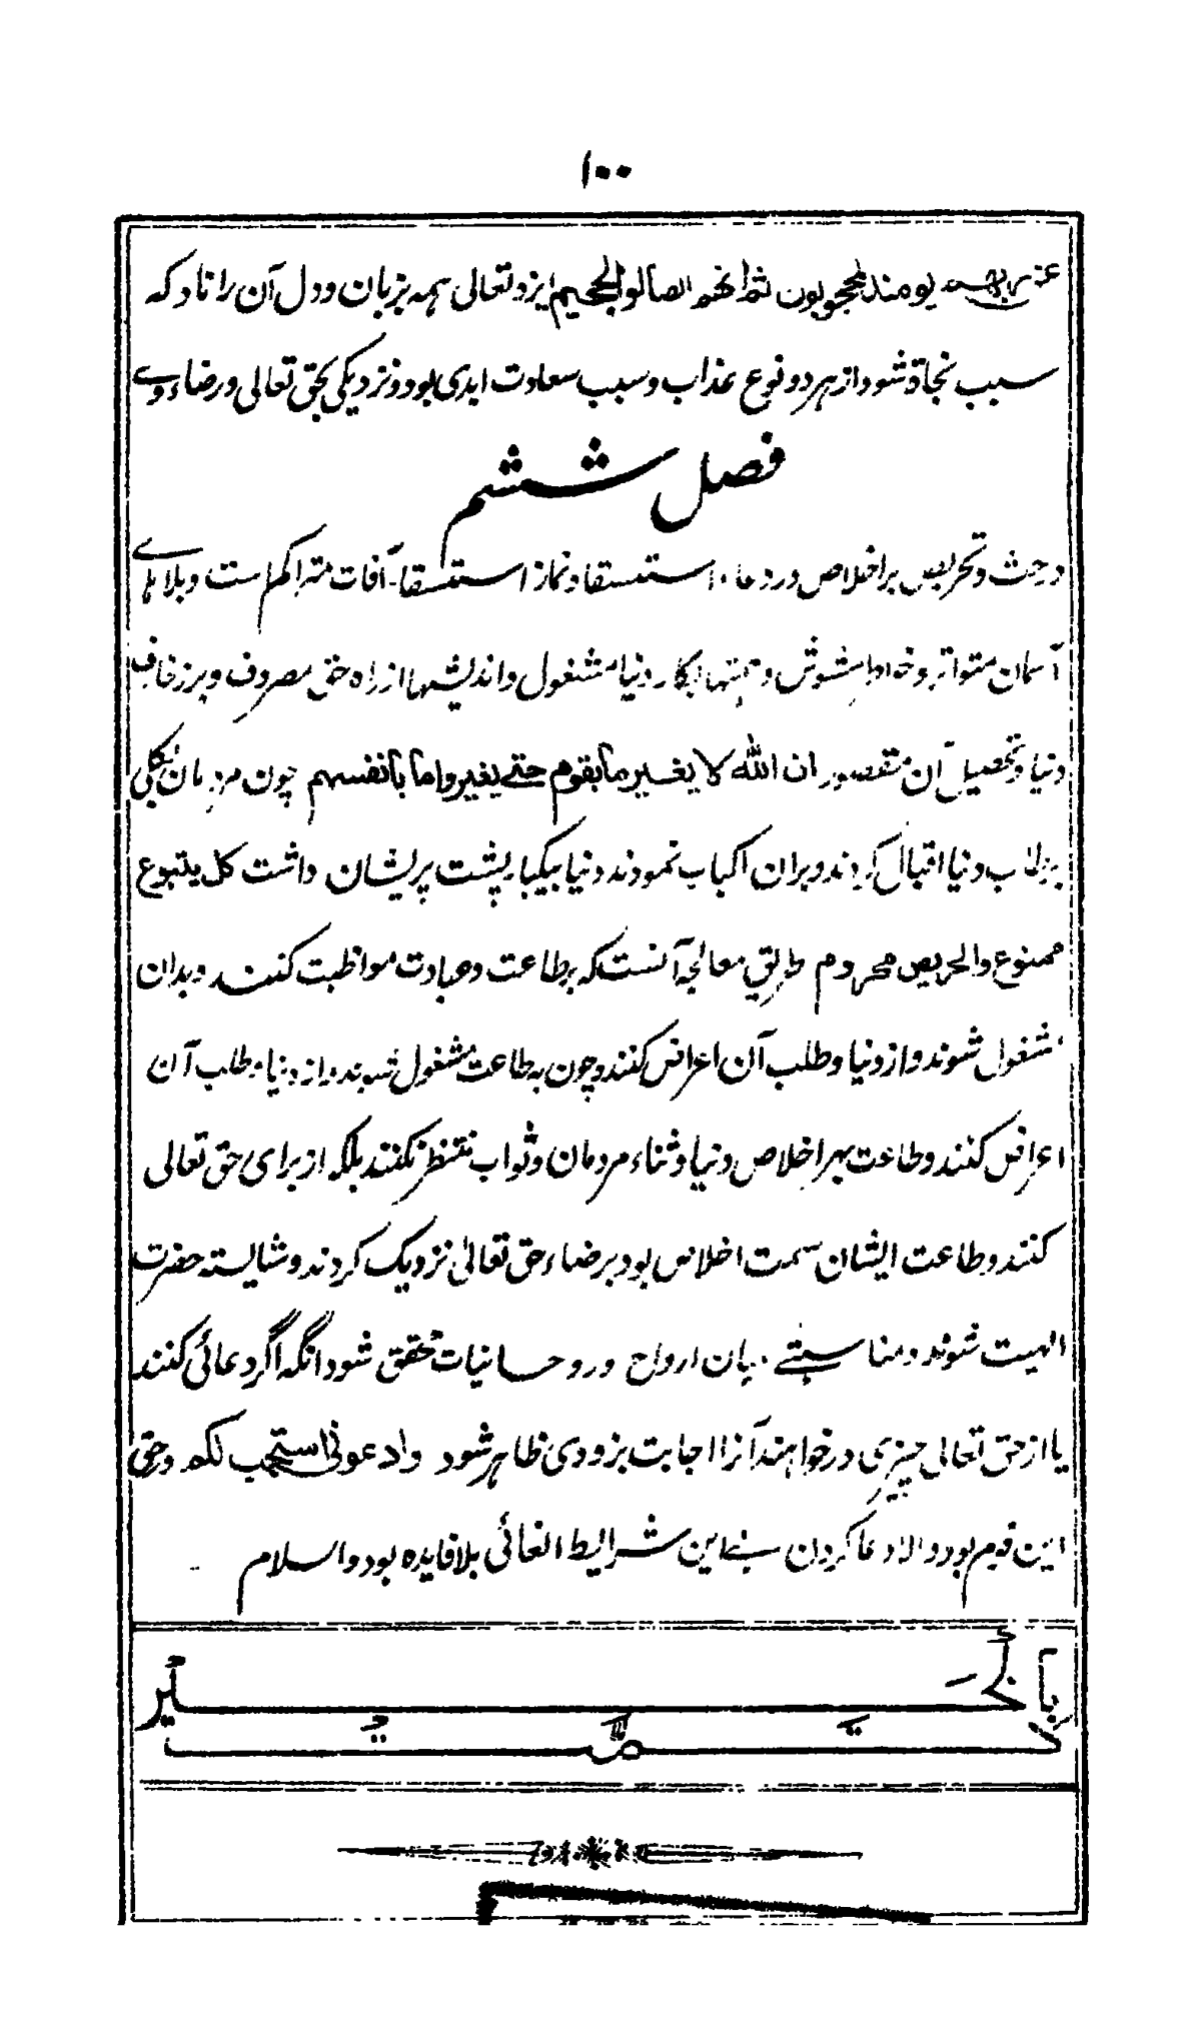 ۱۰۰
عن ربهم یومئذ لمحجوبون ثم انهم لصالوا الجحیم ایزد تعالی همه بزبان و دل آن راناد که
سبب نجاة شود از هر دو نوع عذاب و سبب سعادت ابدی بود و نزدیکی بحق تعالی و رضاء وے
فصل ششم
در حث و تحریص بر اخلاص و در دعاء استسقا و نماز استسقا آفات متراکم است و بلاهاے
آسمان متواتر و مشوش و همتها بکار دنیا مشغول و اندیشها از راه حق مصروف و بر زخارف
دنیا و تحصیل آن مقصور ان الله لا یغیر ما بقوم حتے یغیروا ما بانفسهم چون مردمان بکلی
بطلب دنیا اقبال کردند و بران اکباب نمودند دنیا بیکبار پشت بریشان داشت کل متبوع
ممنوع والحریص محروم طریق معالجه آنست که بر طاعت و عبادت مواظبت کنند و بدان
مشغول شوند و از دنیا و طلب آن اعراض کنند و چون به طاعت مشغول شدند و از دنیا و طلب آن
اعراض کنند و طاعت بهر اخلاص دنیا و ثناء مردمان و ثواب منتظر نکنند بلکه از برای حق تعالی
کنند و طاعت ایشان سمت اخلاص بود برضاء حق تعالی نزدیک کردند و شایسته حضرت
الهیت شوند و مناسبتے میان ارواح و روحانیات محقق شود انگه اگر دعائی کنند
یا از حق تعالی چیزی درخواهند آنرا اجابت بزودی ظاهر شود وادعونی استجب لکم در حق
این قوم بود والا دعا کردن بے این شرایط الغائی بلا فایده بود والسلام
تمت
بالخیر